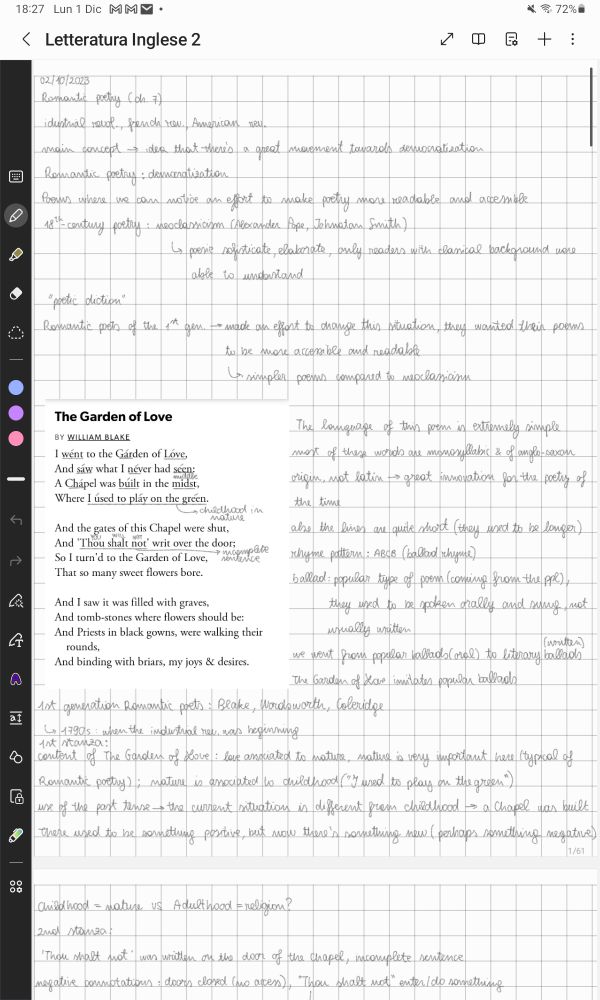 18:27 Lun 1 Dic 72%
Letteratura Inglese 2
02/10/2023
Romantic poetry (ch. 7)
idustrial revol., french rev., American rev.
main concept → idea that there's a great movement towards democratization
Romantic poetry: democratization
Poems where we can notice an effort to make poetry more readable and accessible
18th-century poetry: neoclassicism (Alexander Pope, Johnatan Smith)
↳ poesie sofisticate, elaborate, only readers with classical background were
able to understand
"poetic diction"
Romantic poets of the 1st gen. → made an effort to change this situation, they wanted their poems
to be more accessible and readable
↳ simpler poems compared to neoclassicism
The Garden of Love
BY WILLIAM BLAKE
I went to the Garden of Love,
And saw what I never had seen:
middle
A Chapel was built in the midst,
Where I used to play on the green.
→ childhood in
nature
And the gates of this Chapel were shut,
And 'Thou shalt not' writ over the door;
→ incomplete
sentence
So I turn'd to the Garden of Love,
That so many sweet flowers bore.
And I saw it was filled with graves,
And tomb-stones where flowers should be:
And Priests in black gowns, were walking their
rounds,
And binding with briars, my joys & desires.
The language of this poem is extremely simple
most of these words are monosyllabic & of anglo-saxon
origin, not latin → great innovation for the poetry of
the time
also the lines are quite short (they used to be longer)
rhyme pattern: ABCB (ballad rhyme)
ballad: popular type of poem (coming from the ppl),
they used to be spoken orally and sung, not
usually written
(written)
we went from popular ballads(oral) to literary ballads
The Garden of Love imitates popular ballads
1st generation Romantic poets: Blake, Wordsworth, Coleridge
↳ 1790s: when the industrial rev. was beginning
1st stanza:
content of The Garden of Love: love associated to nature, nature is very important here (typical of
Romantic poetry); nature is associated to childhood ("I used to play on the green")
use of the past tense → the current situation is different from childhood → a Chapel was built
there used to be something positive, but now there's something new (perhaps something negative)
1/61
Childhood = nature VS Adulthood = religion?
2nd stanza:
'Thou shalt not' was written on the door of the chapel, incomplete sentence
negative connotations: doors closed (no access), "Thou shalt not" enter/do something